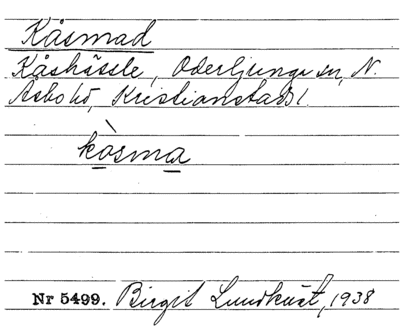 Kåsmad
Kåshässle, Oderljunga sn, N.
Åsbo hd, Kristianstads l.
kòsma
Nr 5499. Birgit Lundkvist, 1938